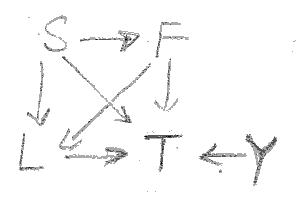 S F
L T Y